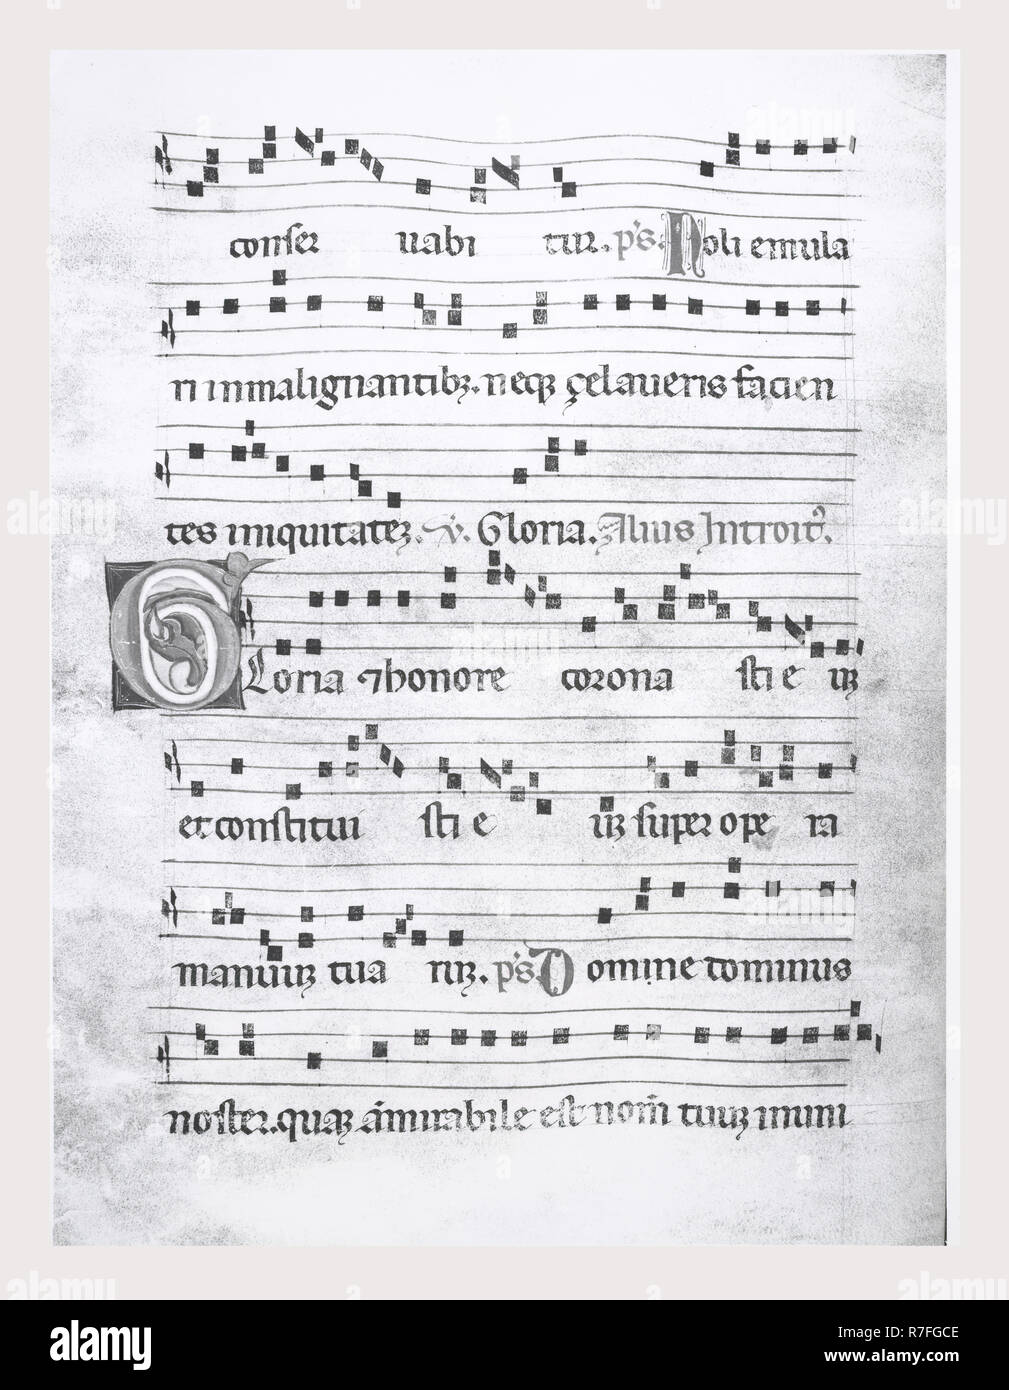 conser uabi tur. p̄s. Noli emula
ri in malignantibꝫ. neqꝫ çelaueris facien
tes iniquitateꝫ. ꝟ. Gloria. Alius Introitꝰ.
Gloria ⁊ honore corona sti e uꝫ
et constitui sti e uꝫ super ope ra
manuuꝫ tua ruꝫ. p̄s. Domine dominus
noster. quaꝫ amirabile est nom̄ tuuꝫ in uni
alamy
Image ID: R7FGCE
www.alamy.com